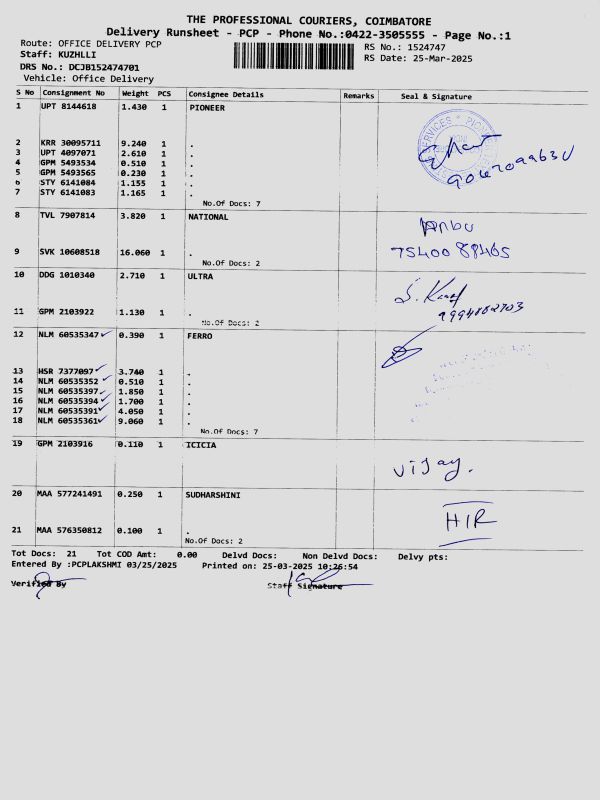 THE PROFESSIONAL COURIERS, COIMBATORE
Delivery Runsheet - PCP - Phone No.:0422-3505555 - Page No.:1
Route: OFFICE DELIVERY PCP
Staff: KUZHLLI
RS No.: 1524747
RS Date: 25-Mar-2025
DRS No.: DCJB152474701
Vehicle: Office Delivery
S No Consignment No Weight PCS Consignee Details Remarks Seal & Signature
1 UPT 8144618 1.430 1 PIONEER
2 KRR 30095711 9.240 1 .
3 UPT 4097071 2.610 1 .
4 GPM 5493534 0.510 1 .
5 GPM 5493565 0.230 1 .
6 STY 6141084 1.155 1 .
7 STY 6141083 1.165 1 .
No.Of Docs: 7
8 TVL 7907814 3.820 1 NATIONAL
Anbu
75400 88465
9 SVK 10608518 16.060 1 .
No.Of Docs: 2
10 DDG 1010340 2.710 1 ULTRA
11 GPM 2103922 1.130 1 .
No.Of Docs: 2
12 NLM 60535347 0.390 1 FERRO
13 HSR 7377097 3.740 1 .
14 NLM 60535352 0.510 1 .
15 NLM 60535397 1.850 1 .
16 NLM 60535394 1.700 1 .
17 NLM 60535391 4.050 1 .
18 NLM 60535361 9.060 1 .
No.Of Docs: 7
19 GPM 2103916 0.110 1 ICICIA
Vijay.
20 MAA 577241491 0.250 1 SUDHARSHINI
HIR
21 MAA 576350812 0.100 1 .
No.Of Docs: 2
Tot Docs: 21 Tot COD Amt: 0.00 Delvd Docs: Non Delvd Docs: Delvy pts:
Entered By :PCPLAKSHMI 03/25/2025 Printed on: 25-03-2025 10:26:54
Verified By Staff Signature